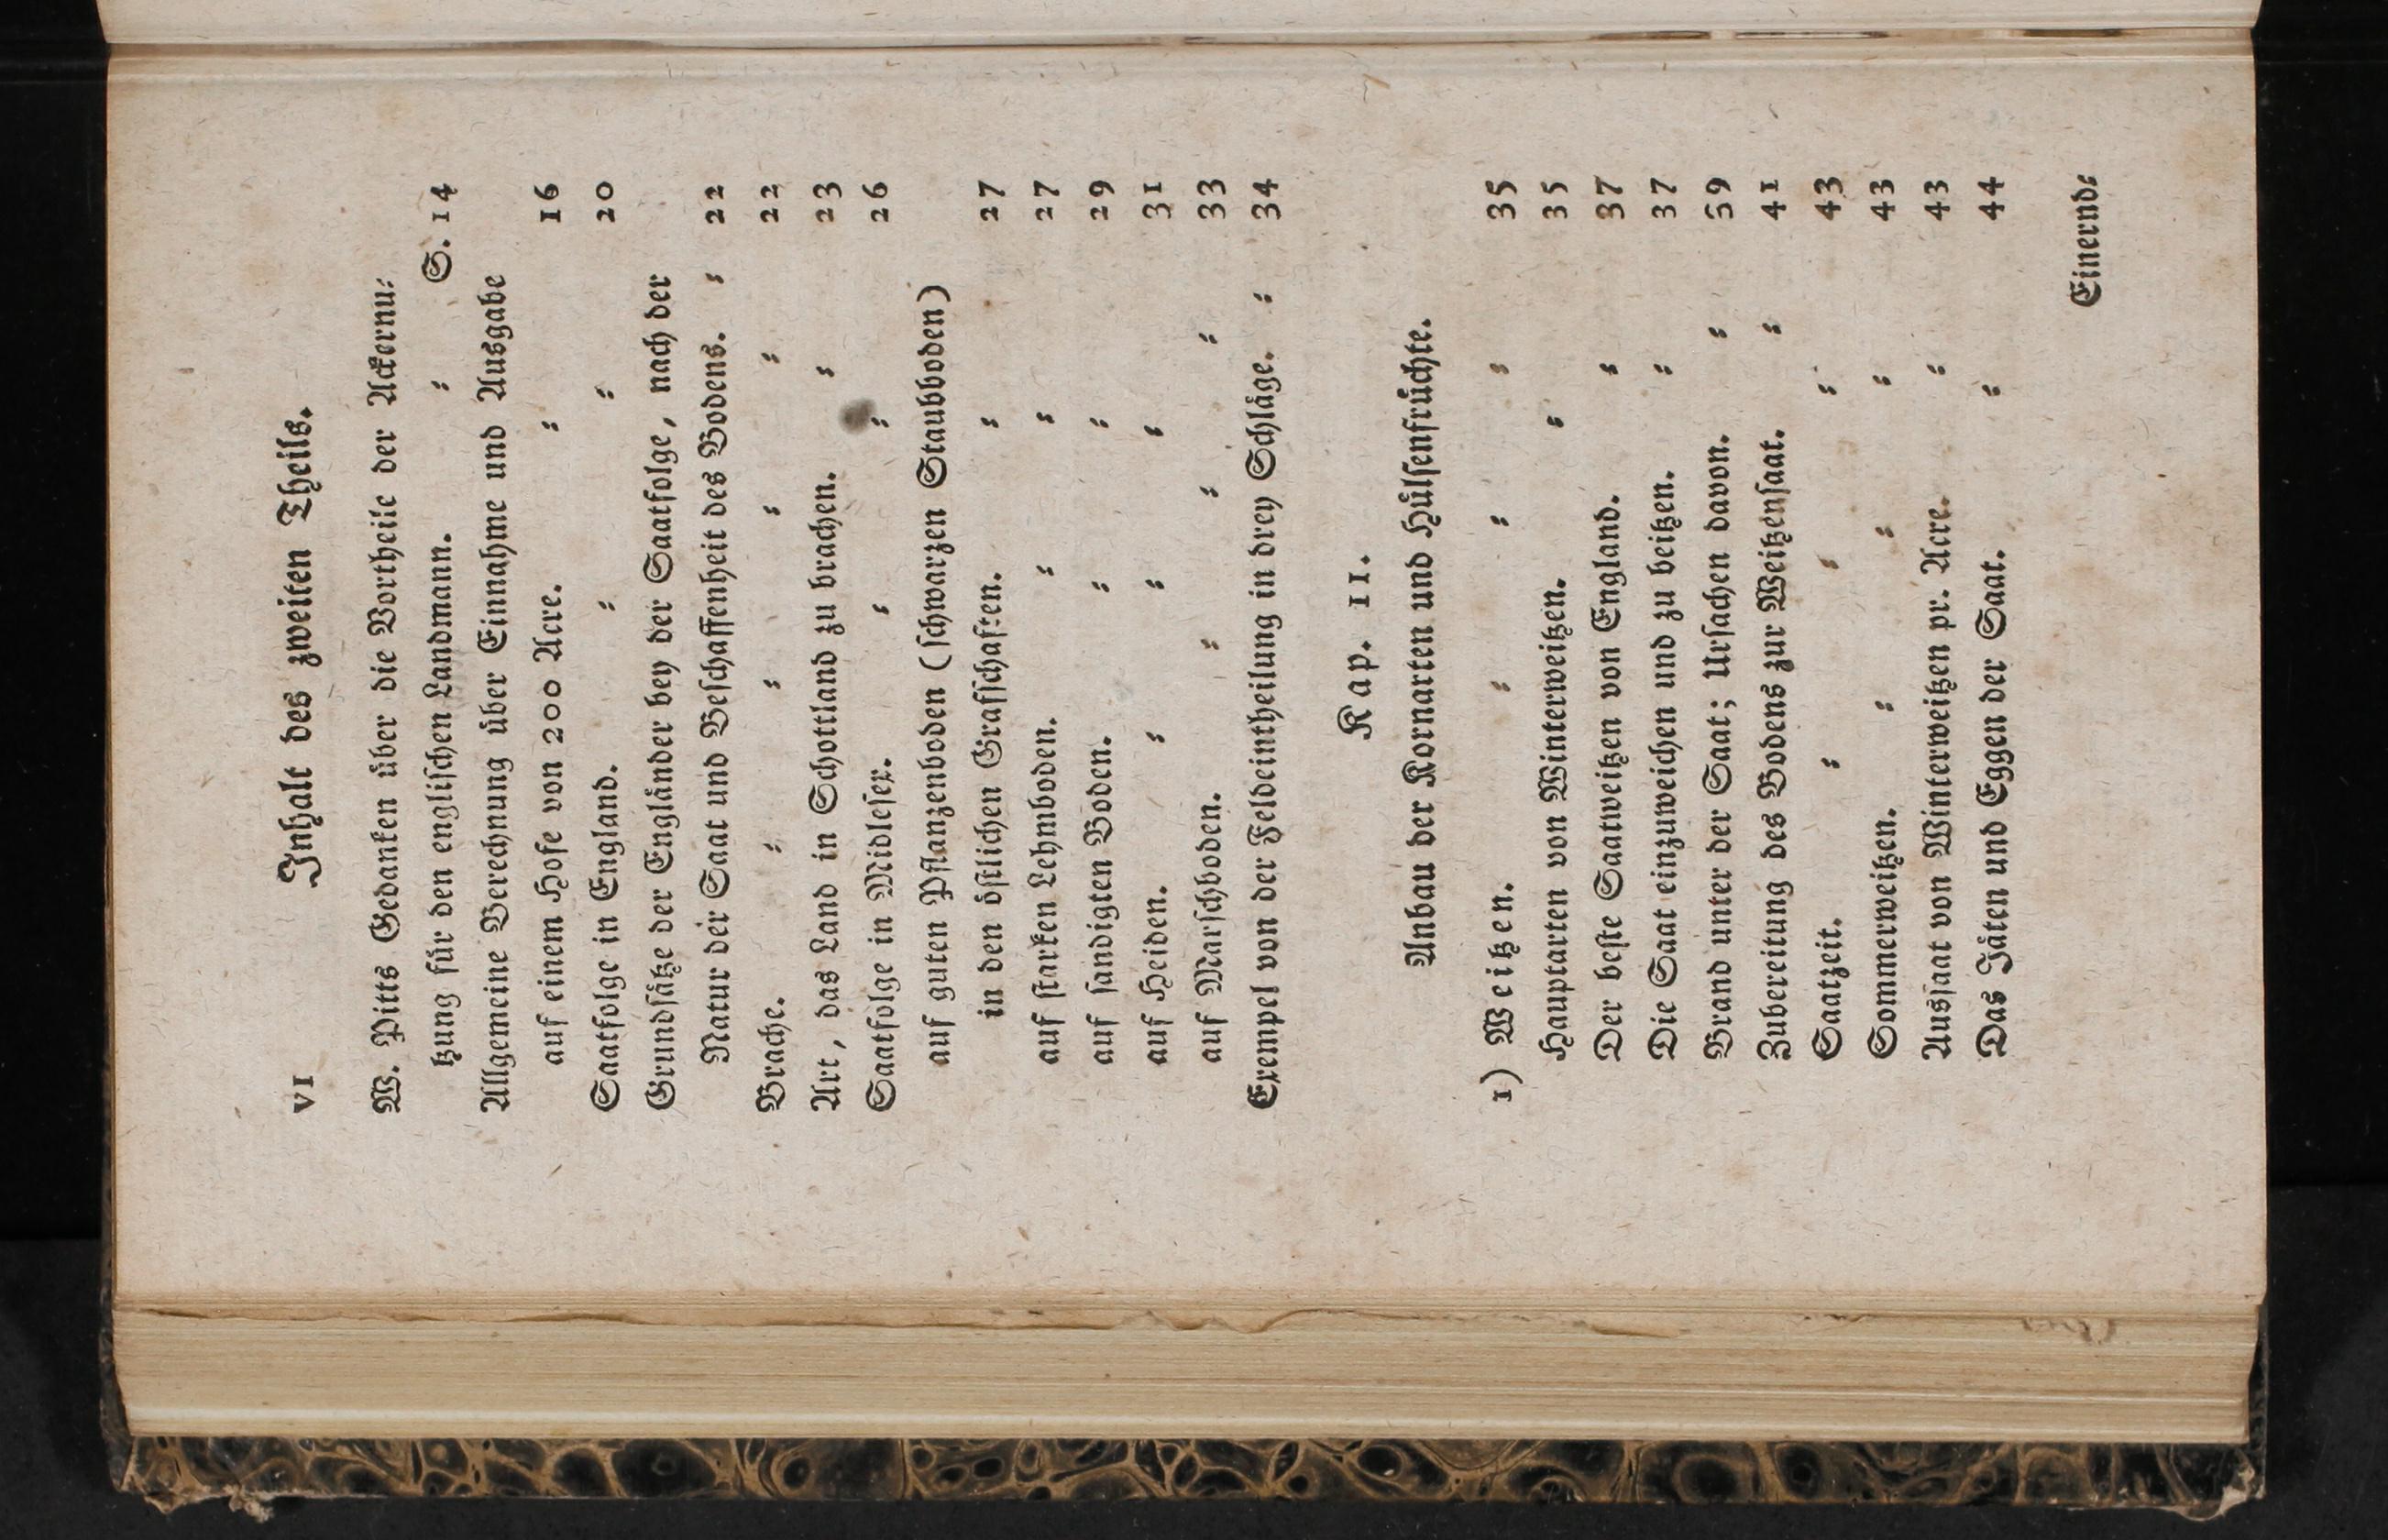 VI Inhalt des zweiten Theils.
W. Pitts Gedanken über die Vortheile der Ackernu⸗
tzung für den englischen Landmann. ⸗ S. 14
Allgemeine Berechnung über Einnahme und Ausgabe
auf einem Hofe von 200 Acre. ⸗ 16
Saatfolge in England. ⸗ ⸗ 20
Grundsätze der Engländer bey der Saatfolge, nach der
Natur der Saat und Beschaffenheit des Bodens. ⸗ 22
Brache. ⸗ ⸗ ⸗ ⸗ 22
Art, das Land in Schottland zu brachen. ⸗ 23
Saatfolge in Midlesex. ⸗ ⸗ 26
auf guten Pflanzenboden (schwarzen Staubboden)
in den östlichen Grafschaften. ⸗ 27
auf starken Lehmboden. ⸗ ⸗ 27
auf sandigten Boden. ⸗ ⸗ 29
auf Heiden. ⸗ ⸗ ⸗ 31
auf Marschboden. ⸗ ⸗ ⸗ 33
Exempel von der Feldeintheilung in drey Schläge. ⸗ 34
Kap. 11.
Anbau der Kornarten und Hülsenfrüchte.
1) Weitzen. ⸗ ⸗ ⸗ 35
Hauptarten von Winterweitzen. ⸗ 35
Der beste Saatweitzen von England. ⸗ 37
Die Saat einzuweichen und zu beitzen. ⸗ 37
Brand unter der Saat; Ursachen davon. ⸗ 39
Zubereitung des Bodens zur Weitzensaat. ⸗ 41
Saatzeit. ⸗ ⸗ ⸗ 43
Sommerweitzen. ⸗ ⸗ ⸗ 43
Aussaat von Winterweitzen pr. Acre. ⸗ 43
Das Jäten und Eggen der Saat. ⸗ 44
Einernd⸗